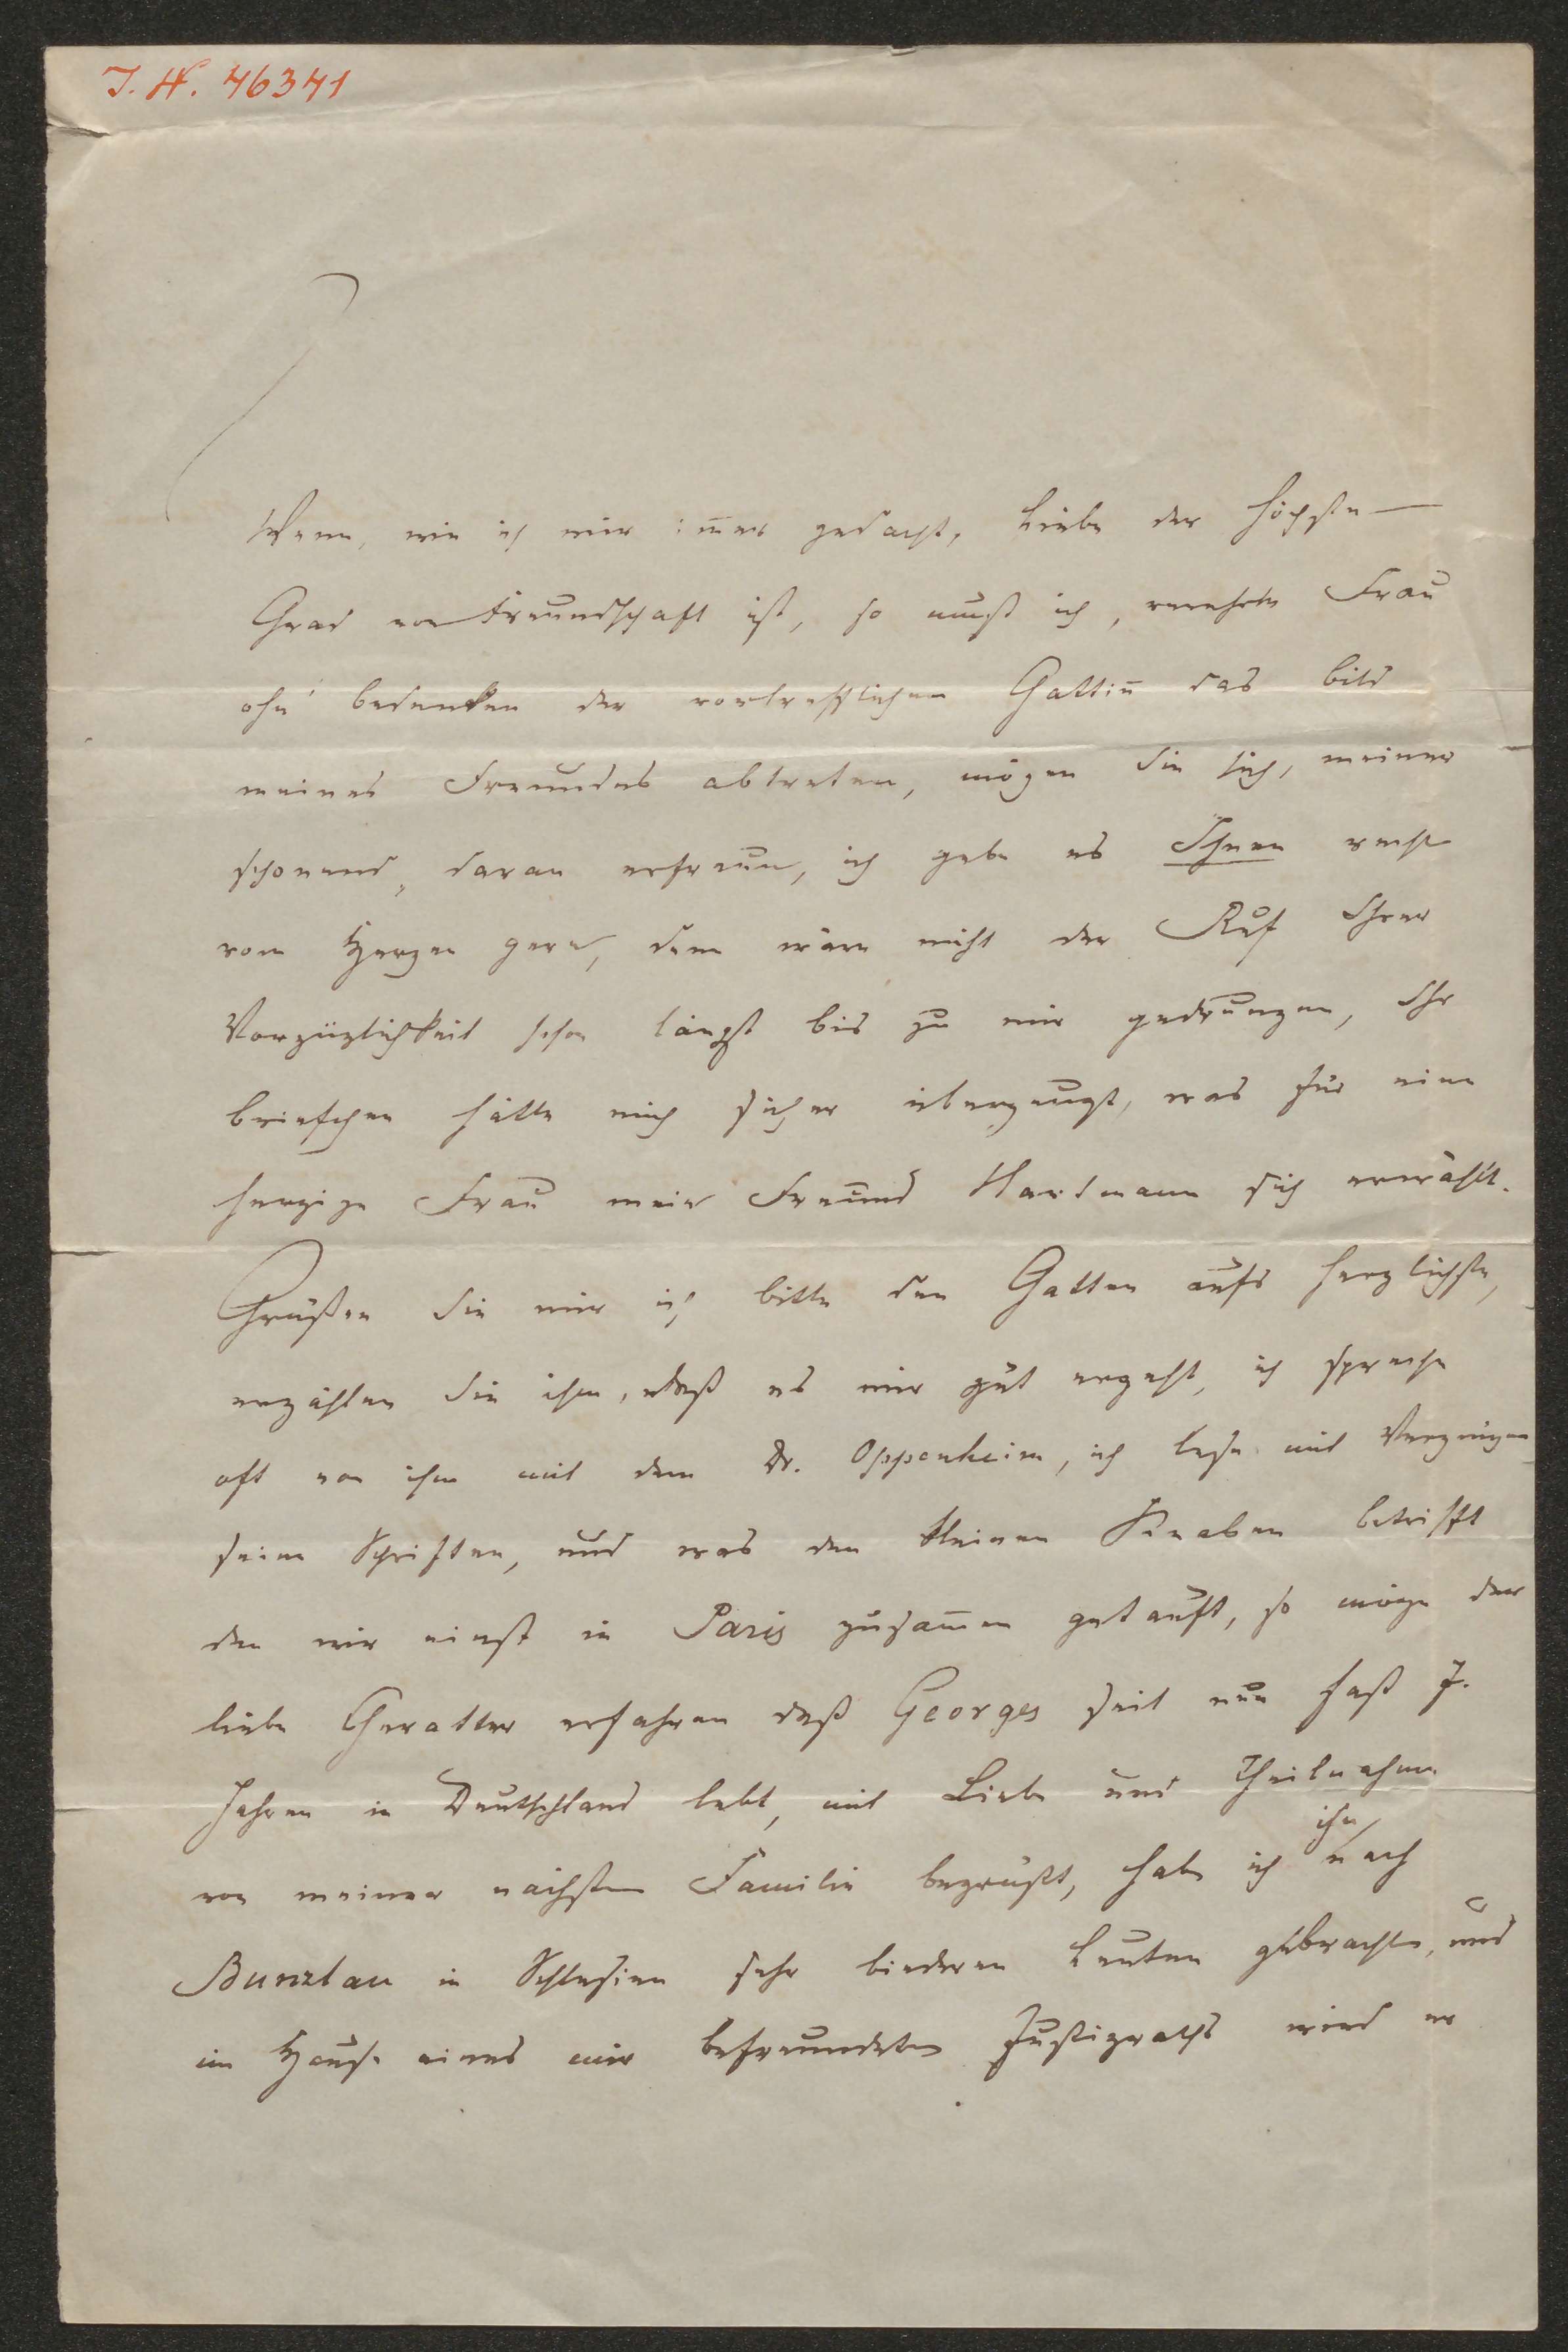 J. N. 46341
Wenn, wie ich mir im̅er gedacht, Liebe der höchste
Grad von Freundschaft ist, so muß ich, verehrte Frau
ohn' bedenken der vortrefflichen Gattin̅ das bild
meines Freundes abtreten, mögen Sie sich, meiner
schonend, daran erfreun, ich gebe es Ihnen recht
von Herzen gern, denn wäre nicht der Ruf Ihrer
Vorzüglichkeit schon längst bis zu mir gedrungen, Ihr
briefchen hätte mich sicher überzeugt, was für eine
herzige Frau mein Freund Hartmann sich erwählt.
Grüßen Sie mir ich bitte den Gatten aufs herzlichste,
erzählen Sie ihm, daß es mir gut ergeht, ich spreche
oft von ihm mit dem Dr. Oppenheim, ich lese mit Vergnügen
seine Schriften, und was den kleinen Knaben betrifft
den wir einst in Paris zusam̅en getauft, so möge der
liebe Gevatter erfahren daß Georges seit nun fast 7.
Jahren in Deutschland lebt, mit Liebe und Theilnahme
von meiner nächsten Familie begrüßt, habe ich ihn nach
Bunzlau in Schlesien sehr biederen Leuten gebracht, und
im Hause eines mir befreundeten Justizraths wird er